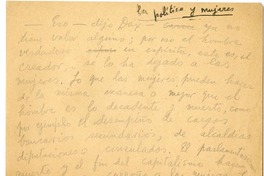 En política y mujeres
Eso — dijo Dax — ya no
tiene valor alguno; por eso el hombre
verdadero en espíritu, esto es, el
creador, se lo ha dejado a las
mujeres. Lo que las mujeres pueden hacer
de la misma manera o mejor que el
hombre es lo decadente, muerto, como
por ejemplo el desempeño de cargos
burocráticos secundarios, de alcaldías
diputaciones circulados. El parlamentarismo
muerto y el fin del capitalismo